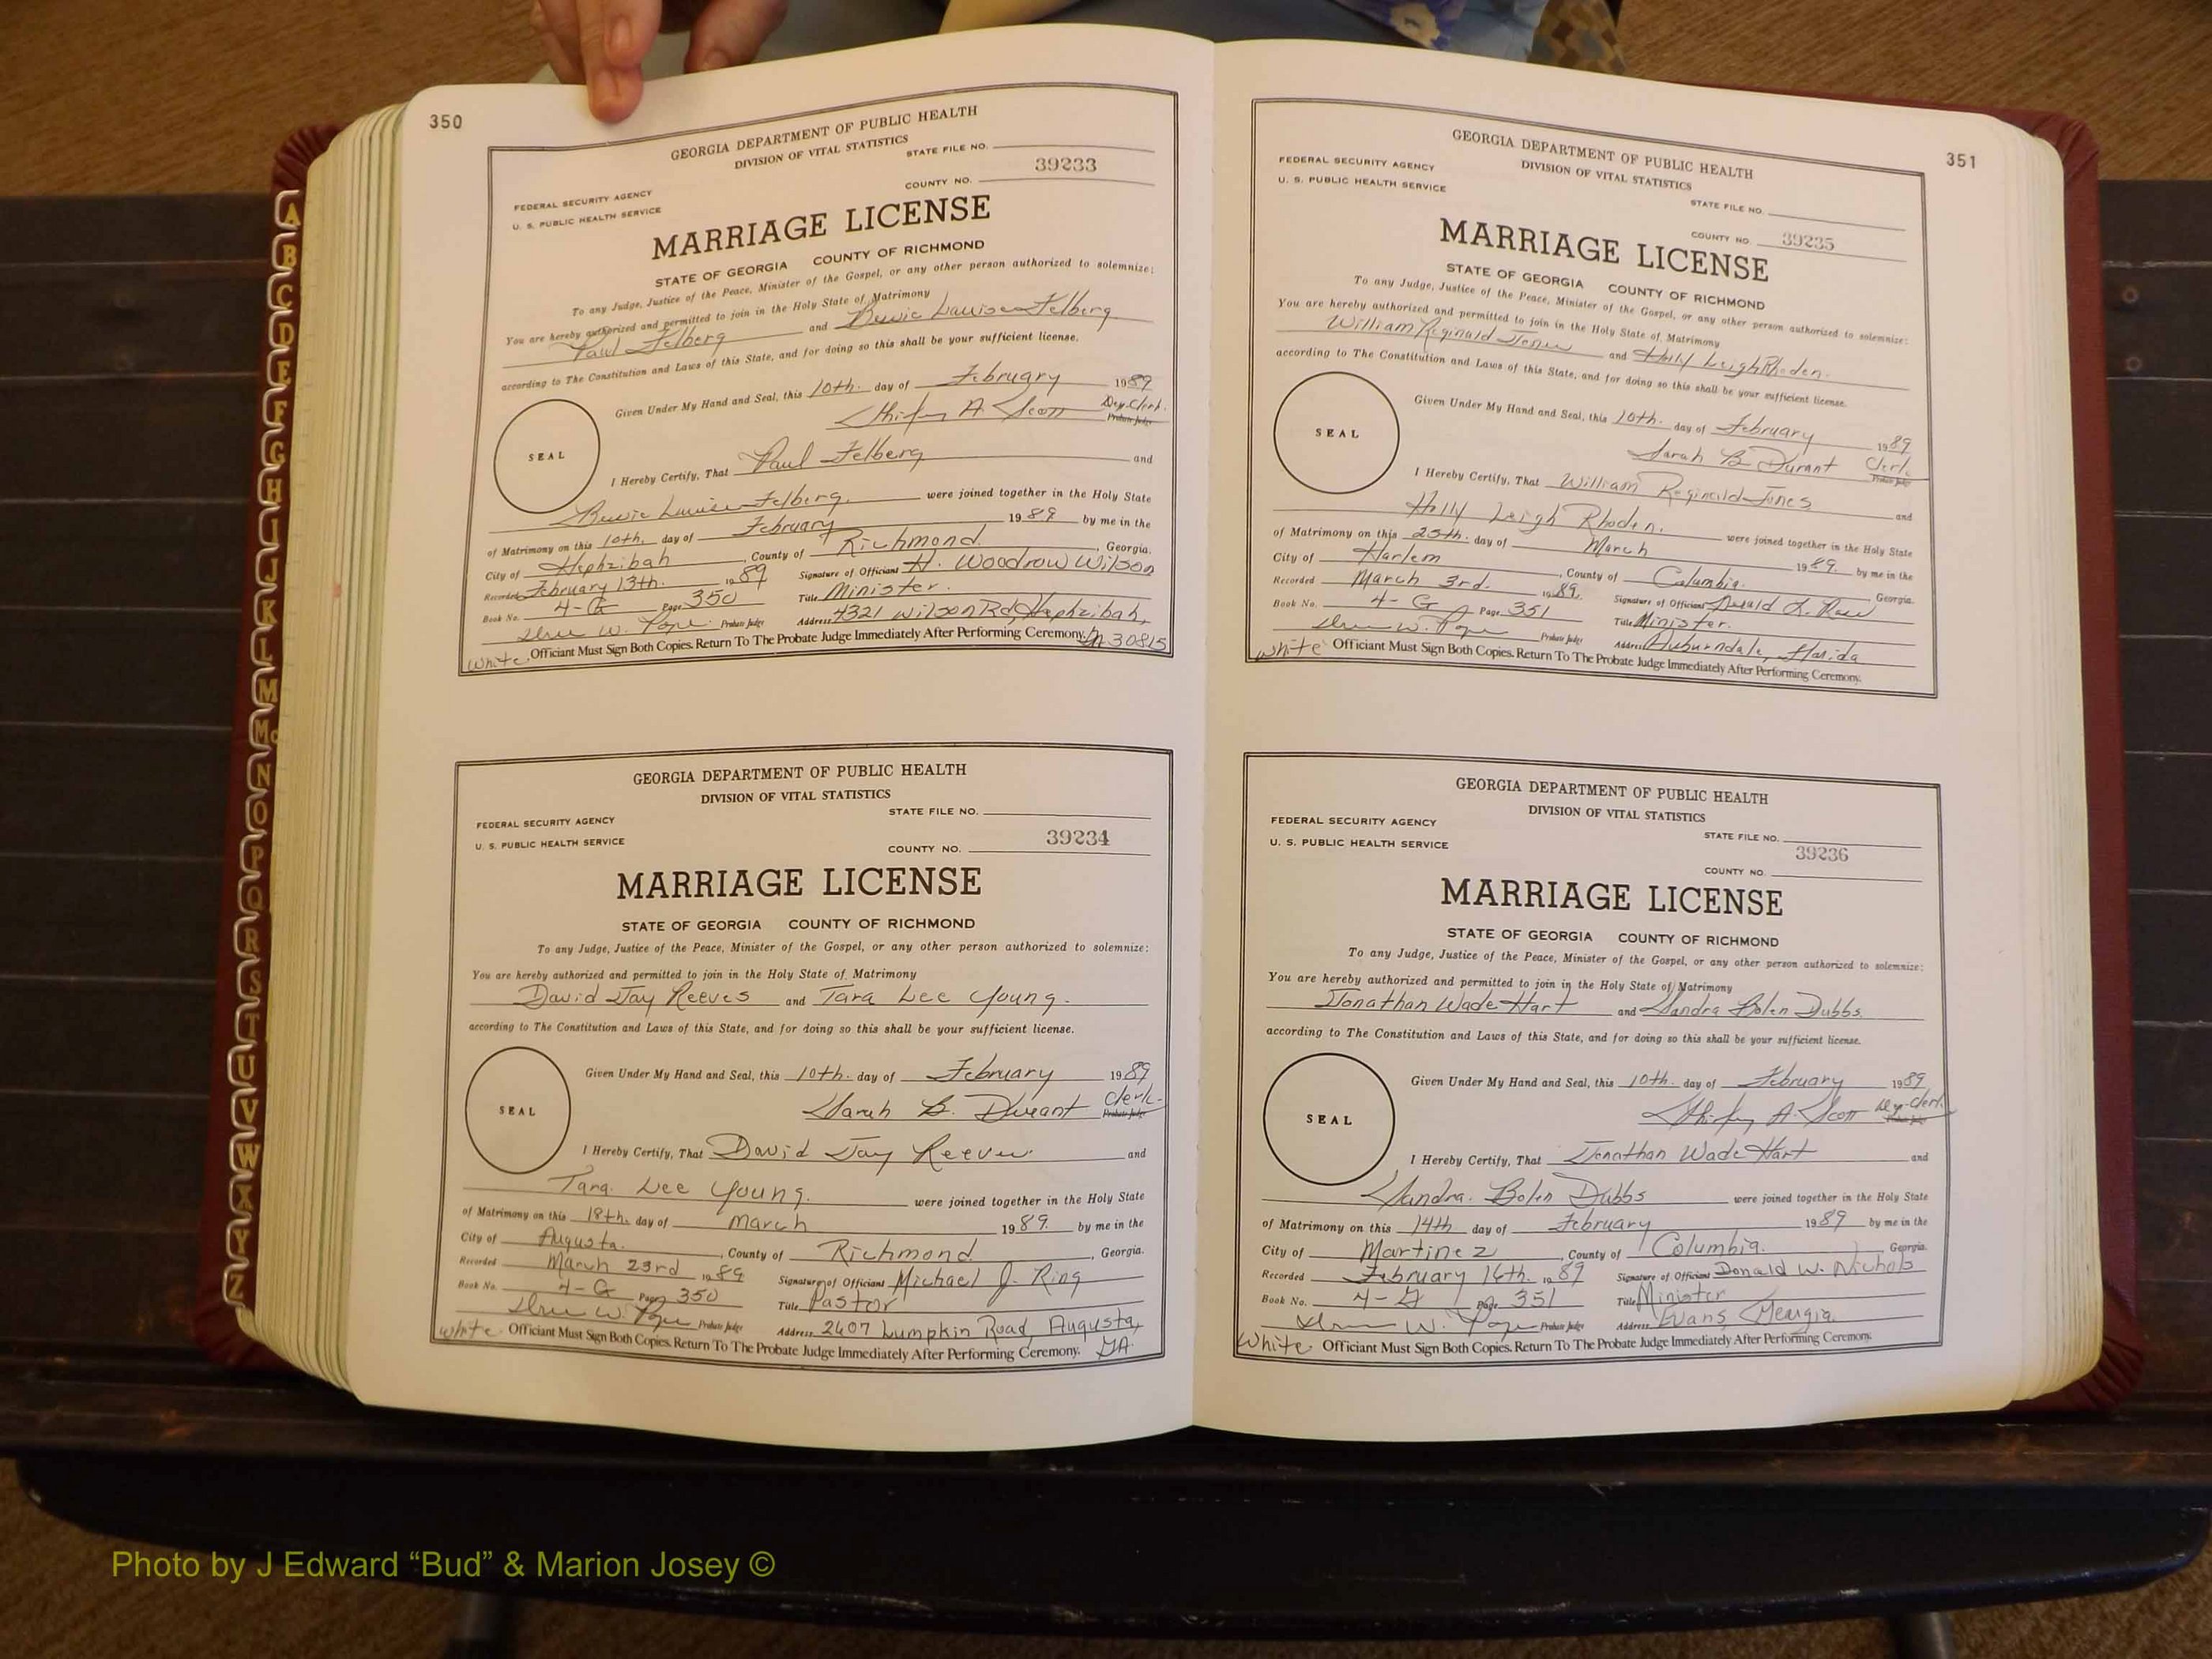 350
GEORGIA DEPARTMENT OF PUBLIC HEALTH
DIVISION OF VITAL STATISTICS
STATE FILE NO.
39233
FEDERAL SECURITY AGENCY
COUNTY NO.
U. S. PUBLIC HEALTH SERVICE
MARRIAGE LICENSE
STATE OF GEORGIA COUNTY OF RICHMOND
To any Judge, Justice of the Peace, Minister of the Gospel, or any other person authorized to solemnize:
You are hereby authorized and permitted to join in the Holy State of Matrimony
Paul Felberg and Louise Felberg
according to The Constitution and Laws of this State, and for doing so this shall be your sufficient license.
Given Under My Hand and Seal, this 10th. day of February 1989
Shirley A. Scott Dep. Clerk.
Probate Judge
SEAL
I Hereby Certify, That Paul Felberg and
Louise Felberg. were joined together in the Holy State
of Matrimony on this 10th. day of February 1989 by me in the
City of Hephzibah, County of Richmond, Georgia.
Recorded February 13th. 1989 Signature of Officiant H. Woodrow Wilson
Book No. 4-G Page 350 Title Minister.
W. Pope Probate Judge Address 4321 Wilson Rd, Hephzibah,
White. Officiant Must Sign Both Copies. Return To The Probate Judge Immediately After Performing Ceremony. Ga 30815
GEORGIA DEPARTMENT OF PUBLIC HEALTH
DIVISION OF VITAL STATISTICS
STATE FILE NO.
FEDERAL SECURITY AGENCY
39234
U. S. PUBLIC HEALTH SERVICE
COUNTY NO.
MARRIAGE LICENSE
STATE OF GEORGIA COUNTY OF RICHMOND
To any Judge, Justice of the Peace, Minister of the Gospel, or any other person authorized to solemnize:
You are hereby authorized and permitted to join in the Holy State of Matrimony
David Jay Reeves and Tara Lee Young.
according to The Constitution and Laws of this State, and for doing so this shall be your sufficient license.
Given Under My Hand and Seal, this 10th. day of February 1989
Sarah B. Durant Clerk.
Probate Judge
SEAL
I Hereby Certify, That David Jay Reeves. and
Tara Lee Young. were joined together in the Holy State
of Matrimony on this 18th. day of March 1989. by me in the
City of Augusta., County of Richmond, Georgia.
Recorded March 23rd 1989 Signature of Officiant Michael J. Ring
Book No. 4-G Page 350 Title Pastor
W. Pope Probate Judge Address 2407 Lumpkin Road, Augusta,
White. Officiant Must Sign Both Copies. Return To The Probate Judge Immediately After Performing Ceremony. GA.
351
GEORGIA DEPARTMENT OF PUBLIC HEALTH
FEDERAL SECURITY AGENCY
DIVISION OF VITAL STATISTICS
U. S. PUBLIC HEALTH SERVICE
STATE FILE NO.
COUNTY NO. 39235
MARRIAGE LICENSE
STATE OF GEORGIA COUNTY OF RICHMOND
To any Judge, Justice of the Peace, Minister of the Gospel, or any other person authorized to solemnize:
You are hereby authorized and permitted to join in the Holy State of Matrimony
William Reginald Jones and Holly Leigh Rhoden.
according to The Constitution and Laws of this State, and for doing so this shall be your sufficient license.
Given Under My Hand and Seal, this 10th. day of February 1989
Sarah B Durant Clerk
Probate Judge
SEAL
I Hereby Certify, That William Reginald Jones and
Holly Leigh Rhoden. were joined together in the Holy State
of Matrimony on this 25th. day of March 1989. by me in the
City of Harlem, County of Columbia. Georgia.
Recorded March 3rd. 1989. Signature of Officiant
Book No. 4-G Page 351 Title Minister.
W. Pope Probate Judge Address Auburndale, Florida
White Officiant Must Sign Both Copies. Return To The Probate Judge Immediately After Performing Ceremony.
GEORGIA DEPARTMENT OF PUBLIC HEALTH
DIVISION OF VITAL STATISTICS
FEDERAL SECURITY AGENCY
STATE FILE NO.
U. S. PUBLIC HEALTH SERVICE
39236
COUNTY NO.
MARRIAGE LICENSE
STATE OF GEORGIA COUNTY OF RICHMOND
To any Judge, Justice of the Peace, Minister of the Gospel, or any other person authorized to solemnize:
You are hereby authorized and permitted to join in the Holy State of Matrimony
Jonathan Wade Hart and Sandra Bolen Dubbs.
according to The Constitution and Laws of this State, and for doing so this shall be your sufficient license.
Given Under My Hand and Seal, this 10th. day of February 1989
Shirley A. Scott Dep. Clerk.
Probate Judge
SEAL
I Hereby Certify, That Jonathan Wade Hart and
Sandra. Bolen Dubbs were joined together in the Holy State
of Matrimony on this 14th day of February 1989 by me in the
City of Martinez, County of Columbia. Georgia.
Recorded February 16th. 1989 Signature of Officiant Donald W. Nichols
Book No. 4-G Page 351 Title Minister
W. Pope Probate Judge Address Evans, Georgia.
White. Officiant Must Sign Both Copies. Return To The Probate Judge Immediately After Performing Ceremony.
A
B
C
D
E
F
G
H
I
J
K
L
M
Mc
N
O
P
Q
R
S
T
U
V
W
X
Y
Z
Photo by J Edward “Bud” & Marion Josey ©